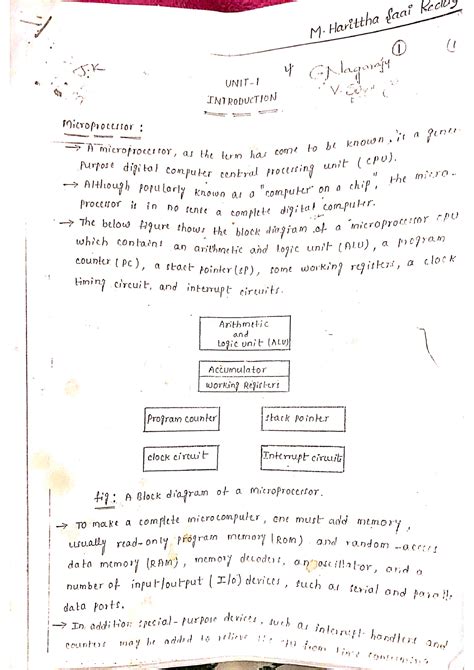 M. Harittha Saai Reddy
①
J.K
G. Nagaraju
UNIT-1
INTRODUCTION
Microprocessor :
→ A microprocessor, as the term has come to be known, is a gener
purpose digital computer central processing unit (CPU).
→ Although popularly known as a "computer on a chip", the micro-
processor is in no sense a complete digital computer.
→ The below figure shows the block diagram of a microprocessor CPU
which contains an arithmetic and logic unit (ALU), a program
counter (PC), a stack pointer (SP), some working registers, a clock
timing circuit, and interrupt circuits.
Arithmetic
and
Logic unit (ALU)
Accumulator
Working Registers
Program counter
Stack pointer
clock circuit
Interrupt circuits
fig : A Block diagram of a microprocessor.
→ To make a complete microcomputer, one must add memory,
usually read-only program memory (ROM) and random-access
data memory (RAM), memory decoders, an oscillator, and a
number of input/output (I/O) devices, such as serial and parallel
data ports.
→ In addition special-purpose devices, such as interrupt handlers and
counters may be added to relieve the CPU from time consuming